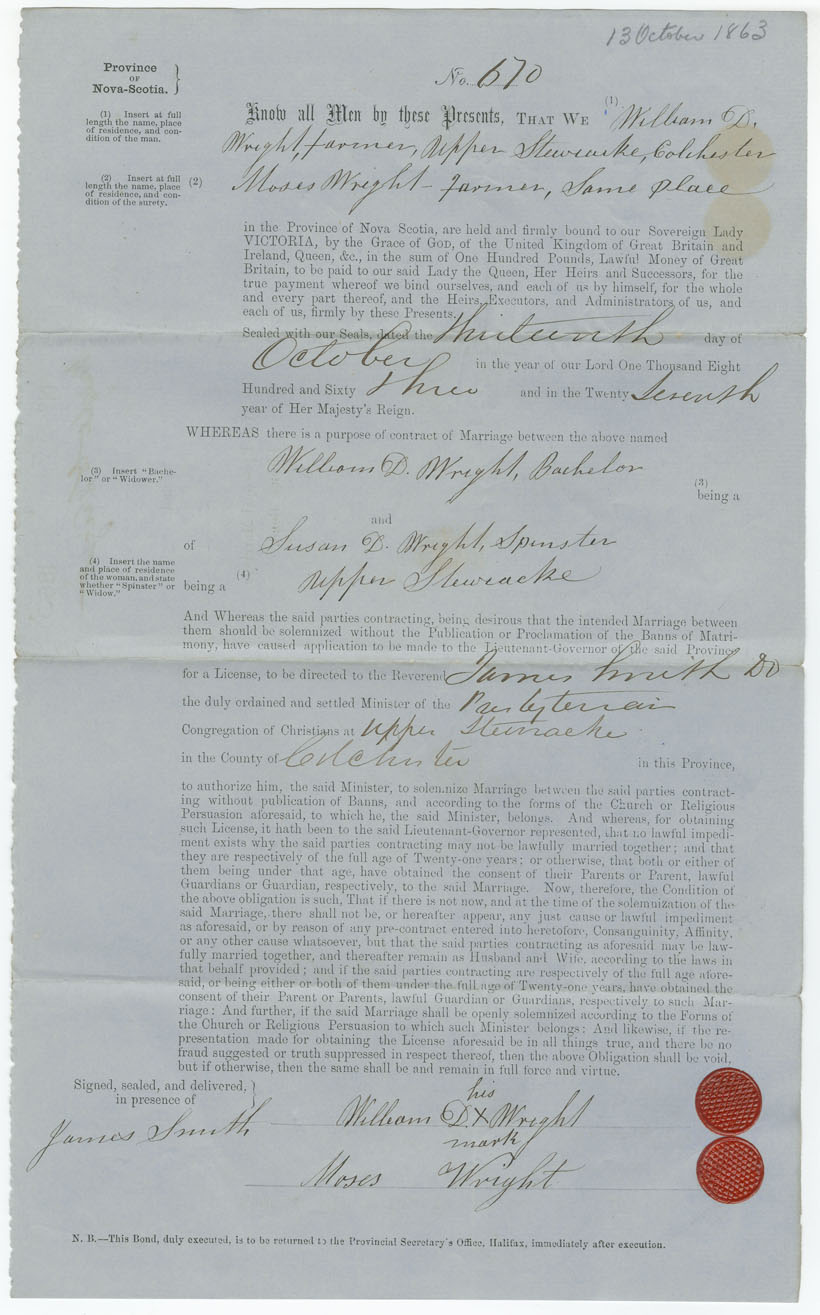 13 October 1863
Province
OF
Nova-Scotia.
No. 670
(1) Insert at full
length the name, place
of residence, and con-
dition of the man.
Know all Men by these Presents, THAT WE (1) William D.
Wright, farmer, Upper Stewiacke, Colchester
(2) Insert at full
length the name, place
of residence, and con-
dition of the surety.
(2) Moses Wright - farmer, Same place
in the Province of Nova Scotia, are held and firmly bound to our Sovereign Lady
VICTORIA, by the Grace of GOD, of the United Kingdom of Great Britain and
Ireland, Queen, &c., in the sum of One Hundred Pounds, Lawful Money of Great
Britain, to be paid to our said Lady the Queen, Her Heirs and Successors, for the
true payment whereof we bind ourselves, and each of us by himself, for the whole
and every part thereof, and the Heirs, Executors, and Administrators of us, and
each of us, firmly by these Presents.
Sealed with our Seals, dated the thirteenth day of
October in the year of our Lord One Thousand Eight
Hundred and Sixty three and in the Twenty Seventh
year of Her Majesty's Reign.
WHEREAS there is a purpose of contract of Marriage between the above named
William D. Wright, Bachelor
(3) Insert "Bache-
lor" or "Widower."
(3)
being a
and
of Susan D. Wright, Spinster
(4) Insert the name
and place of residence
of the woman, and state
whether "Spinster" or
"Widow."
being a (4) Upper Stewiacke
And Whereas the said parties contracting, being desirous that the intended Marriage between
them should be solemnized without the Publication or Proclamation of the Banns of Matri-
mony, have caused application to be made to the Lieutenant-Governor of the said Province
for a License, to be directed to the Reverend James Smith DD
the duly ordained and settled Minister of the Presbyterian
Congregation of Christians at Upper Stewiacke
in the County of Colchester in this Province,
to authorize him, the said Minister, to solemnize Marriage between the said parties contract-
ing without publication of Banns, and according to the forms of the Church or Religious
Persuasion aforesaid, to which he, the said Minister, belongs. And whereas, for obtaining
such License, it hath been to the said Lieutenant-Governor represented, that no lawful impedi-
ment exists why the said parties contracting may not be lawfully married together; and that
they are respectively of the full age of Twenty-one years; or otherwise, that both or either of
them being under that age, have obtained the consent of their Parents or Parent, lawful
Guardians or Guardian, respectively, to the said Marriage. Now, therefore, the Condition of
the above obligation is such, That if there is not now, and at the time of the solemnization of the
said Marriage, there shall not be, or hereafter appear, any just cause or lawful impediment
as aforesaid, or by reason of any pre-contract entered into heretofore, Consanguinity, Affinity,
or any other cause whatsoever, but that the said parties contracting as aforesaid may be law-
fully married together, and thereafter remain as Husband and Wife, according to the laws in
that behalf provided; and if the said parties contracting are respectively of the full age afore-
said, or being either or both of them under the full age of Twenty-one years, have obtained the
consent of their Parent or Parents, lawful Guardian or Guardians, respectively to such Mar-
riage: And further, if the said Marriage shall be openly solemnized according to the Forms of
the Church or Religious Persuasion to which such Minister belongs: And likewise, if the re-
presentation made for obtaining the License aforesaid be in all things true, and there be no
fraud suggested or truth suppressed in respect thereof, then the above Obligation shall be void,
but if otherwise, then the same shall be and remain in full force and virtue.
Signed, sealed, and delivered,
in presence of
his
James Smith William D. X Wright
mark
Moses Wright
N. B.—This Bond, duly executed, is to be returned to the Provincial Secretary's Office, Halifax, immediately after execution.